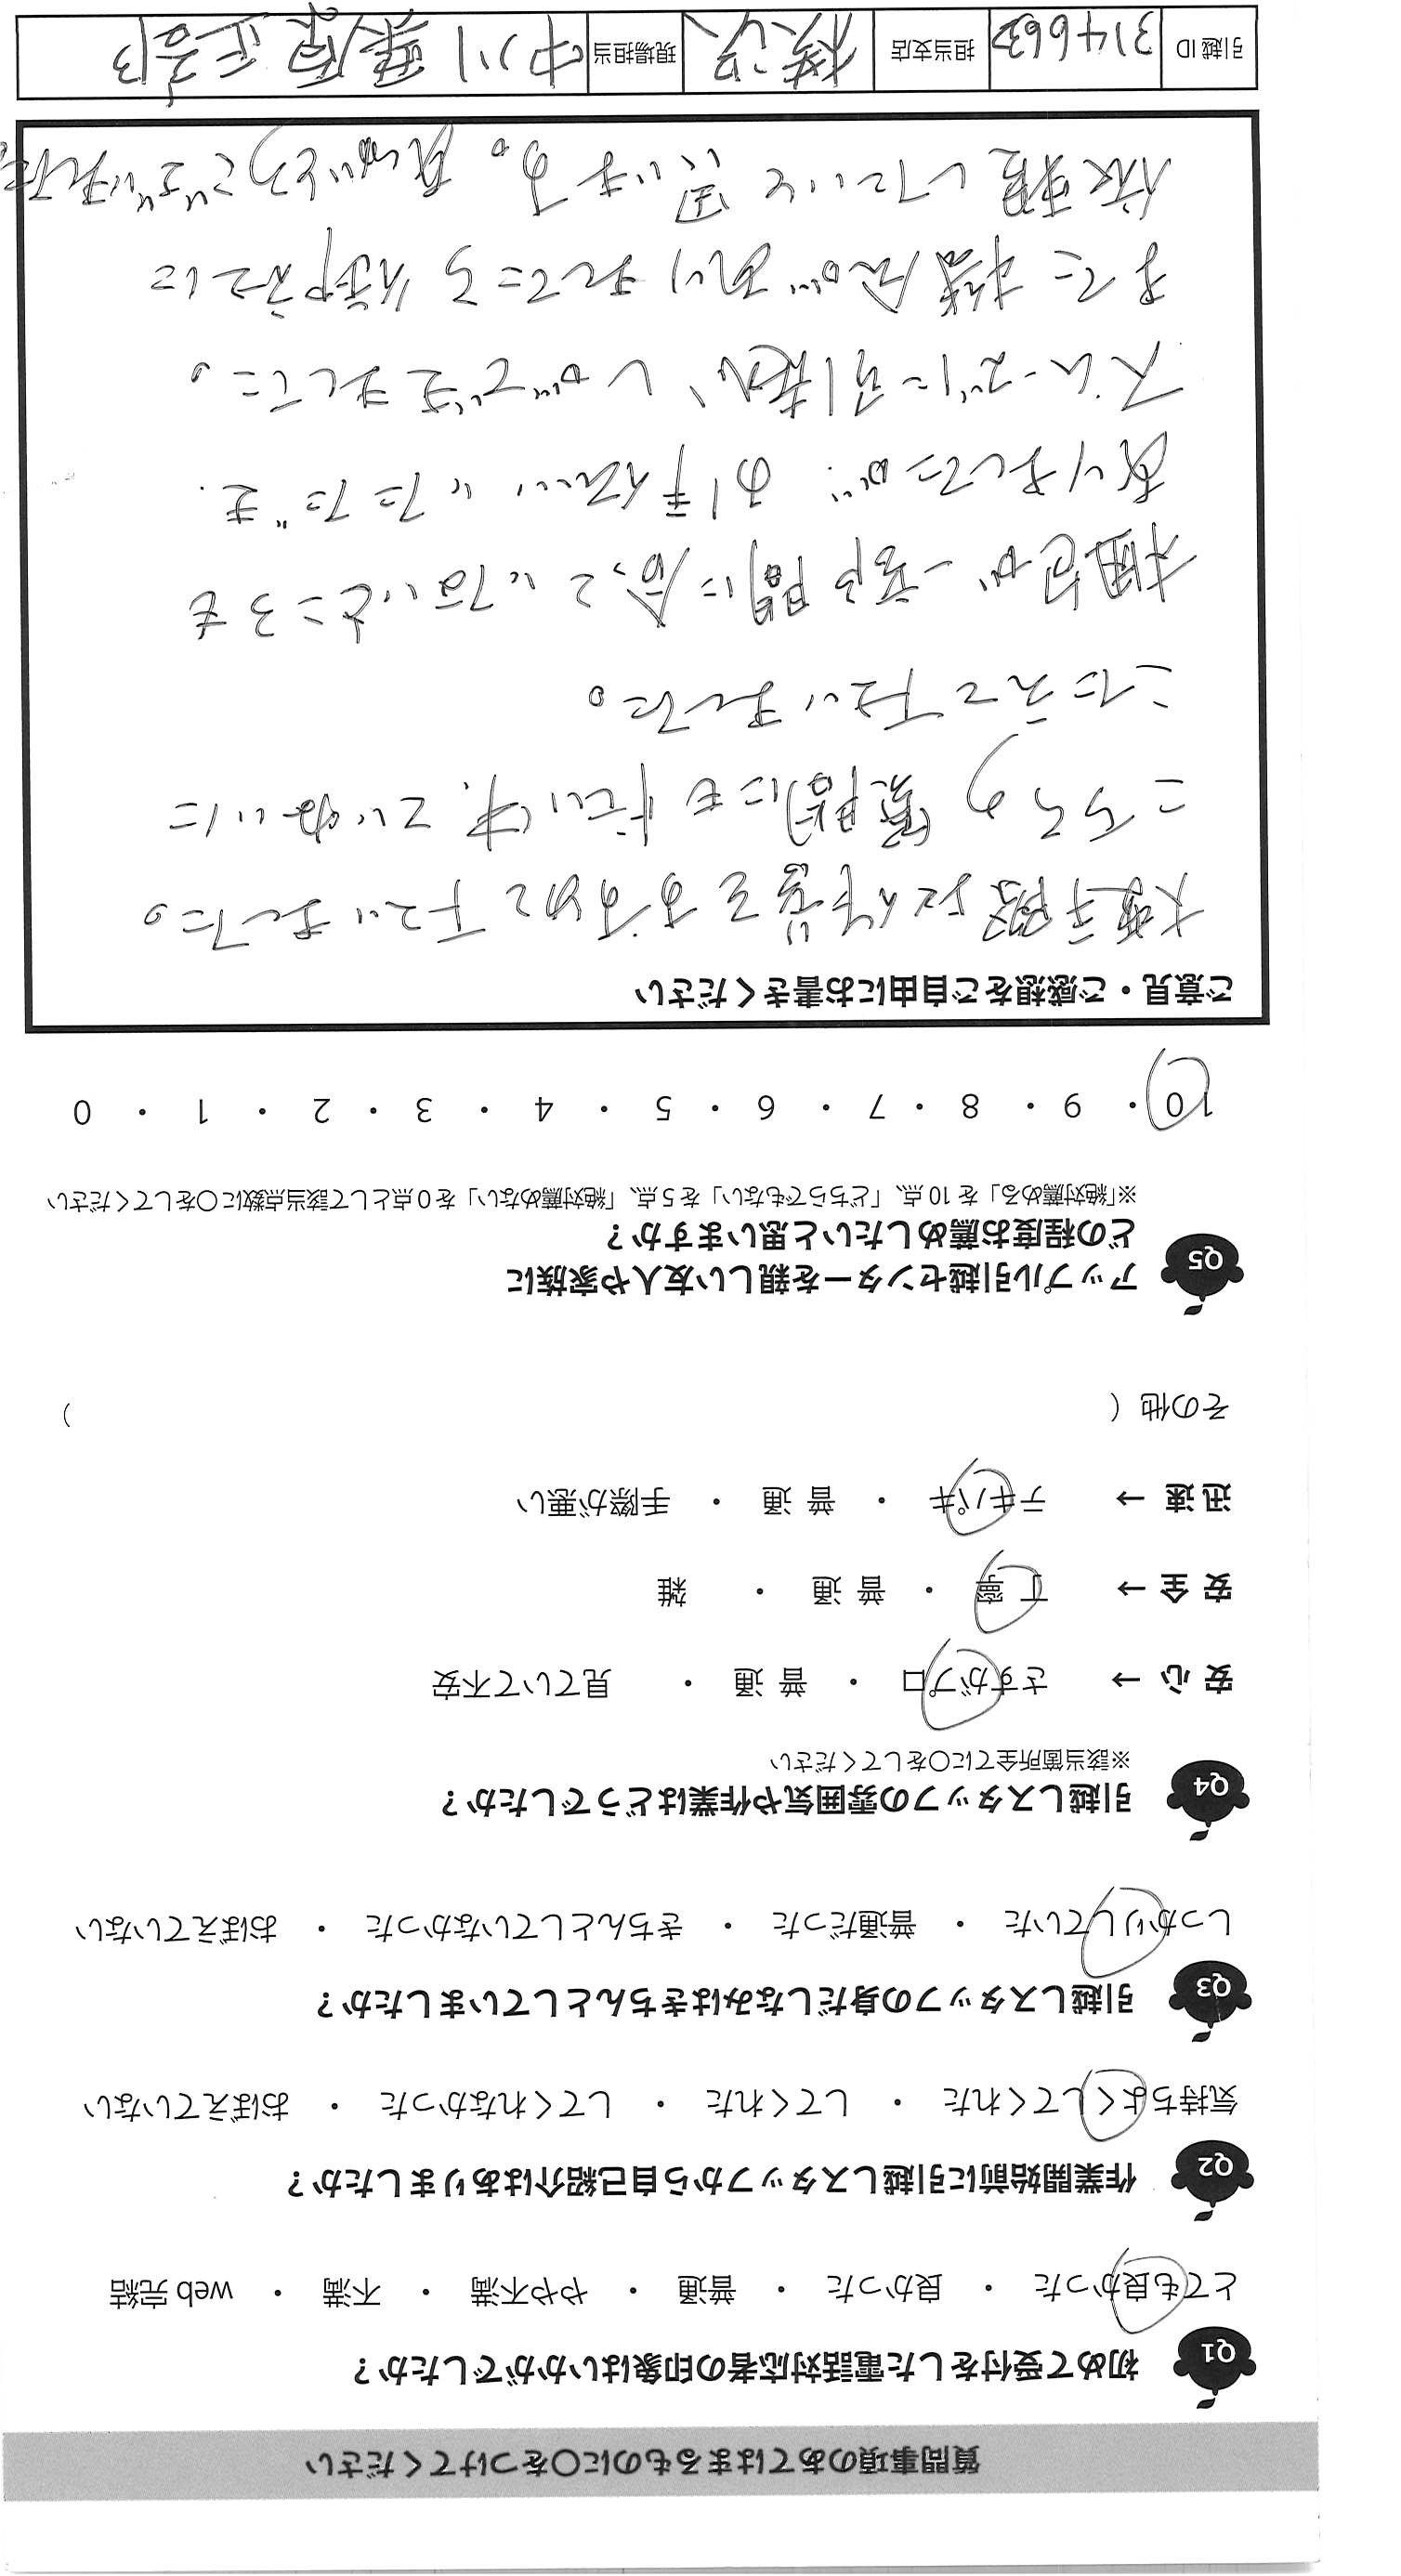 質問事項のあてはまるものに〇をつけてください
Q1 初めて受付をした電話対応者の印象はいかがでしたか？
とても良かった ・ 良かった ・ 普通 ・ やや不満 ・ 不満 ・ web 完結
Q2 作業開始前に引越しスタッフから自己紹介はありましたか？
気持ちよくしてくれた ・ してくれた ・ してくれなかった ・ おぼえていない
Q3 引越しスタッフの身だしなみはきちんとしていましたか？
しっかりしていた ・ 普通だった ・ きちんとしていなかった ・ おぼえていない
Q4 引越しスタッフの雰囲気や作業はどうでしたか？
※該当箇所全てに〇をしてください
安 心 → さすがプロ ・ 普 通 ・ 見ていて不安
安 全 → 丁 寧 ・ 普 通 ・ 雑
迅 速 → テキパキ ・ 普 通 ・ 手際が悪い
その他（ ）
Q5 アップル引越センターを親しい友人や家族に
どの程度お薦めしたいと思いますか？
※「絶対薦める」を 10 点、「どちらでもない」を 5 点、「絶対薦めない」を 0 点として該当点数に〇をしてください
10 ・ 9 ・ 8 ・ 7 ・ 6 ・ 5 ・ 4 ・ 3 ・ 2 ・ 1 ・ 0
ご意見・ご感想をご自由にお書きください
大変手際よく作業をすすめて下さいました。
こちらの質問にも ていねいに
こたえて下さいました。
梱包が一部間に合っていないところも
ありましたが、お手伝いいただき
スムーズに引越しができました。
また機会がありましたら御社に
依頼したいと思います。ありがとうございました。
引越 ID 314663 担当支店 横浜 現場担当 中川